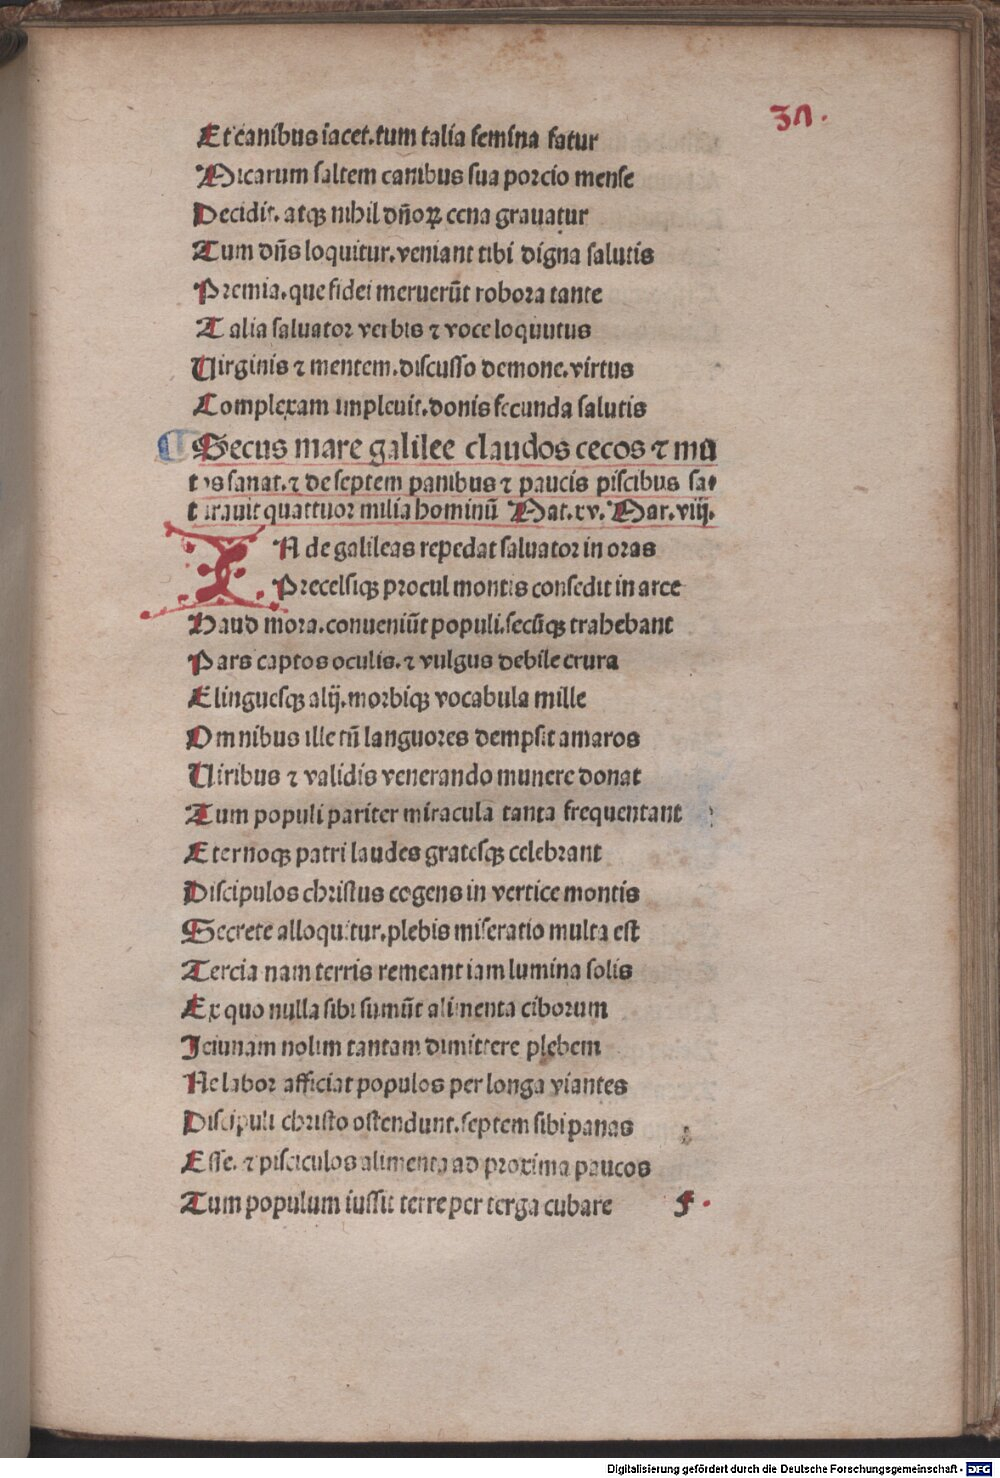 37.
Et canibus iacet.tum talia femina fatur
Micarum saltem canibus sua porcio mense
Decidit. atqꝫ nihil dño⁊ cena grauatur
Tum dñs loquitur.veniant tibi digna salutis
Premia.que fidei meruerūt robora tante
Talia saluator verbis ⁊ voce loquutus
Uirginis ⁊ mentem.discusso demone.virtus
Complexam impleuit.donis fecunda salutis
Secus mare galilee claudos cecos ⁊ mu
tos sanat.⁊ de septem panibus ⁊ paucis piscibus sa
turauit quattuor milia hominū Mat.xv. Mar.viij.
IN de galileas repedat saluator in oras
Precelsiqꝫ procul montis consedit in arce
Haud mora.conueniūt populi.secūqꝫ trahebant
Pars captos oculis.⁊ vulgus debile crura
Elinguesqꝫ alij.morbiqꝫ vocabula mille
Omnibus ille tū languores dempsit amaros
Uiribus ⁊ validis venerando munere donat
Tum populi pariter miracula tanta frequentant
Eternoqꝫ patri laudes gratesqꝫ celebrant
Discipulos christus cogens in vertice montis
Secrete alloquitur.plebis miseratio multa est
Tercia nam terris remeant iam lumina solis
Ex quo nulla sibi sumūt alimenta ciborum
Ieiunam nolim tantam dimittere plebem
Ne labor afficiat populos per longa viantes
Discipuli christo ostendunt.septem sibi panas
Esse. ⁊ pisciculos alimenta ad proxima paucos
Tum populum iussit terre per terga cubare
f.
Digitalisierung gefördert durch die Deutsche Forschungsgemeinschaft - DFG